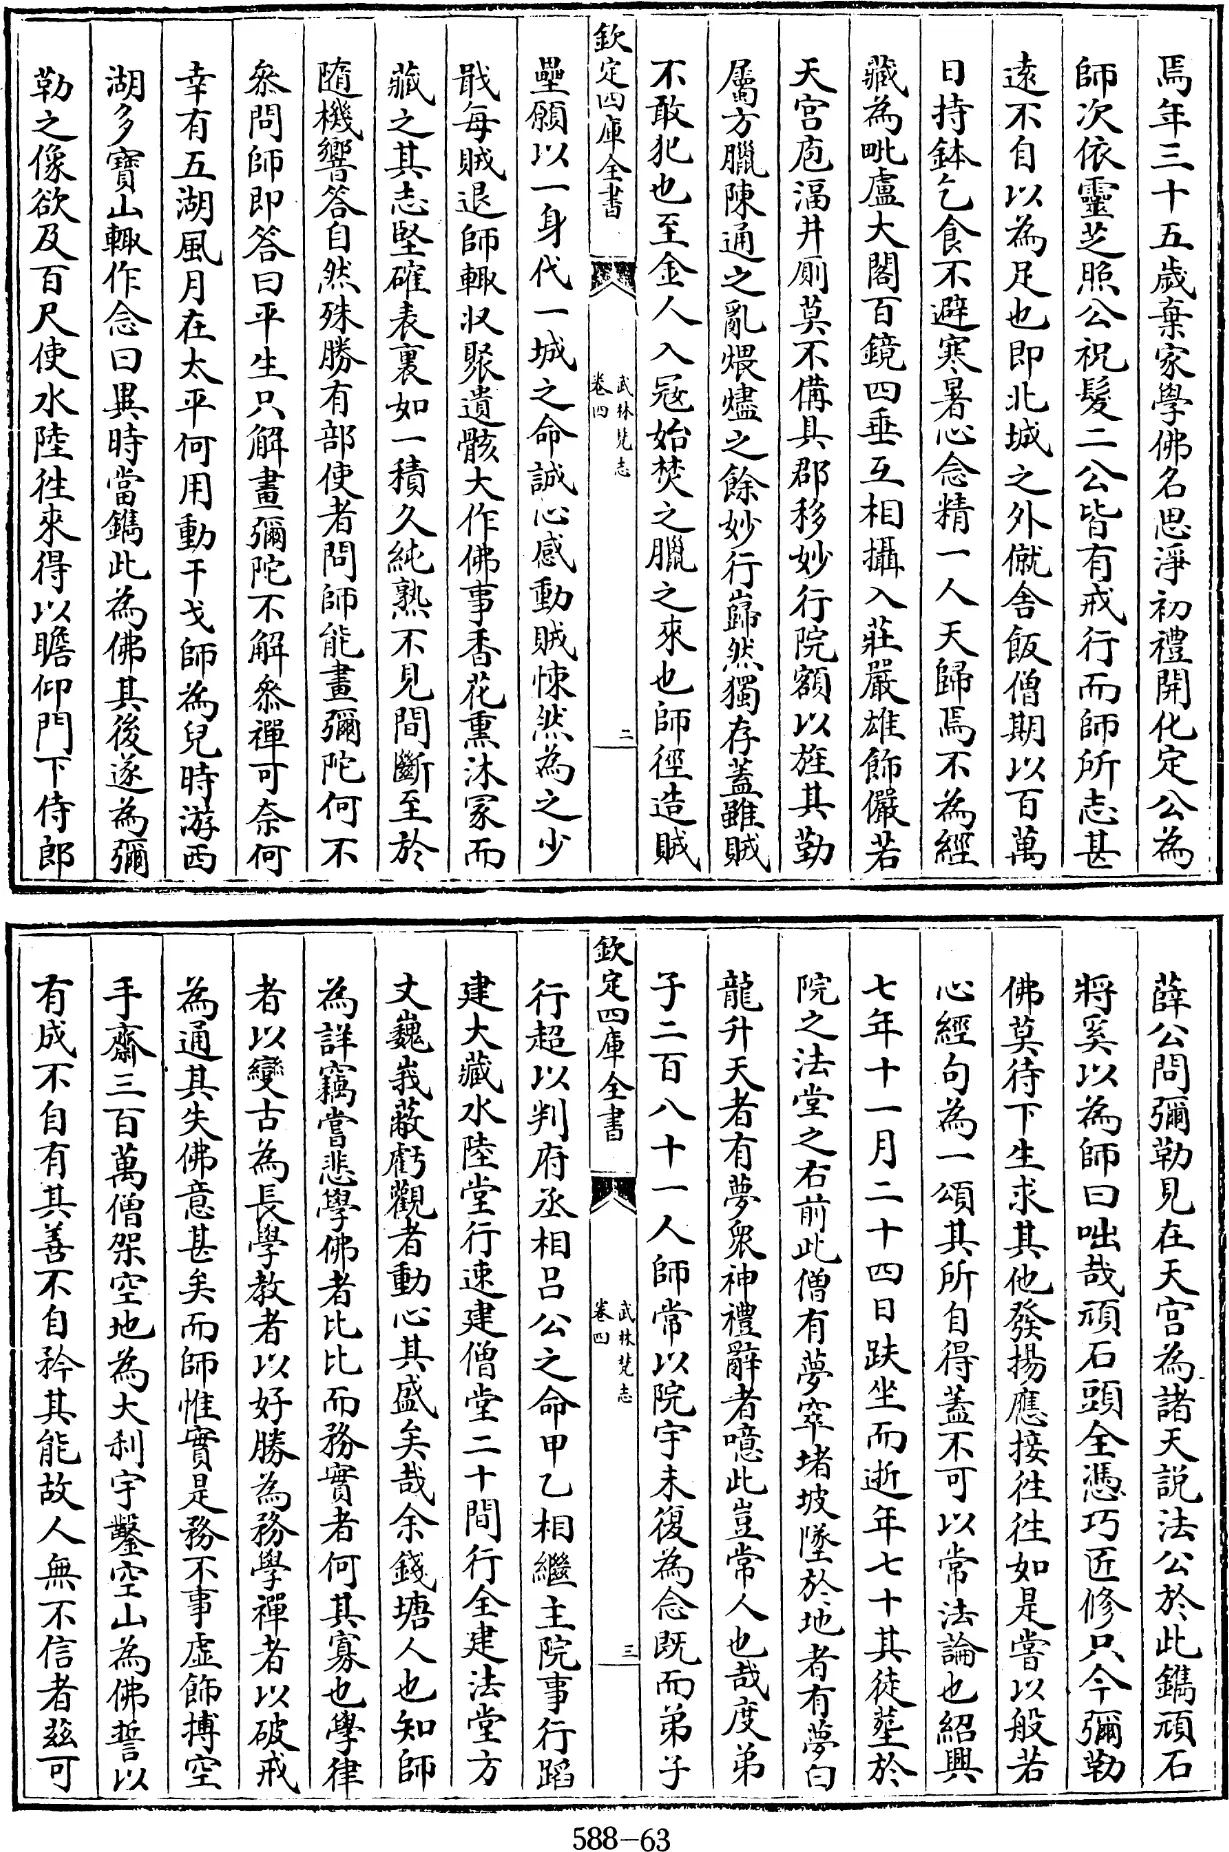 焉年三十五歲棄家學佛名思淨初禮開化定公為
師次依靈芝照公祝髮二公皆有戒行而師所志甚
遠不自以為足也即北城之外僦舍飯僧期以百萬
日持鉢乞食不避寒暑心念精一人天歸焉不為經
藏為毗盧大閣百鏡四垂互相攝入莊嚴雄飾儼若
天宮庖湢井厠莫不備具郡移妙行院額以旌其勤
屬方臘陳通之亂煨燼之餘妙行巋然獨存蓋雖賊
不敢犯也至金人入冦始焚之臘之來也師徑造賊
欽定四庫全書
武林梵志
卷四
二
壘願以一身代一城之命誠心感動賊悚然為之少
戢每賊退師輙收聚遺骸大作佛事香花熏沐冢而
藏之其志堅確表裏如一積久純熟不見間斷至於
隨機響答自然殊勝有部使者問師能畫彌陀何不
叅問師即答曰平生只解畫彌陀不解叅禪可奈何
幸有五湖風月在太平何用動干戈師為兒時游西
湖多寶山輙作念曰異時當鐫此為佛其後遂為彌
勒之像欲及百尺使水陸徃來得以瞻仰門下侍郎
薛公問彌勒見在天宮為諸天說法公於此鐫頑石
將奚以為師曰咄哉頑石頭全憑巧匠修只今彌勒
佛莫待下生求其他發揚應接徃徃如是嘗以般若
心經句為一頌其所自得蓋不可以常法論也紹興
七年十一月二十四日趺坐而逝年七十其徒塟於
院之法堂之右前此僧有夢窣堵坡墜於地者有夢白
龍升天者有夢衆神禮辭者噫此豈常人也哉度弟
子二百八十一人師常以院宇未復為念既而弟子
欽定四庫全書
武林梵志
卷四
三
行超以判府丞相呂公之命甲乙相繼主院事行蹈
建大藏水陸堂行速建僧堂二十間行全建法堂方
丈巍峩蔽虧觀者動心其盛矣哉余錢塘人也知師
為詳竊嘗悲學佛者比比而務實者何其寡也學律
者以變古為長學教者以好勝為務學禪者以破戒
為通其失佛意甚矣而師惟實是務不事虛飾搏空
手齋三百萬僧架空地為大刹宇鑿空山為佛誓以
有成不自有其善不自矜其能故人無不信者茲可
588-63